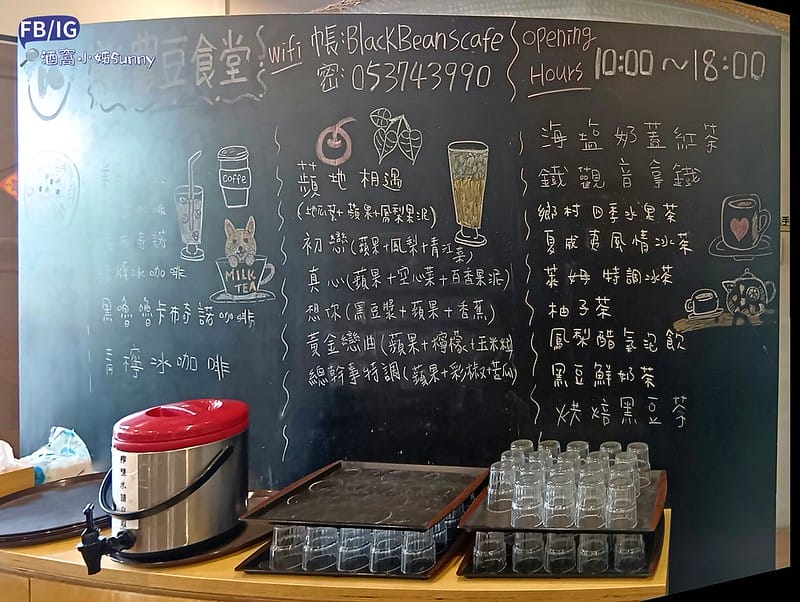 FB/IG
酒窩小姊Sunny
豆食堂
wifi 帳:BlackBeanscafe
密:053743990
opening
Hours
10:00~18:00
coffe
MILK
TEA
冰咖啡
黑嚕嚕卡布奇諾咖啡
青檸冰咖啡
蘋地相遇
(地瓜葉+蘋果+鳳梨果泥)
初戀(蘋果+鳳梨+青江菜)
真心(蘋果+空心菜+百香果泥)
想你(黑豆漿+蘋果+香蕉)
黃金戀曲(蘋果+檸檬+玉米粒
總幹事特調(蘋果+彩椒+苦瓜)
海鹽奶蓋紅茶
鐵觀音拿鐵
鄉村四季水果茶
夏威夷風情冰茶
萊姆特調冰茶
柚子茶
鳳梨醋氣泡飲
黑豆鮮奶茶
烘焙黑豆茶
檸檬水